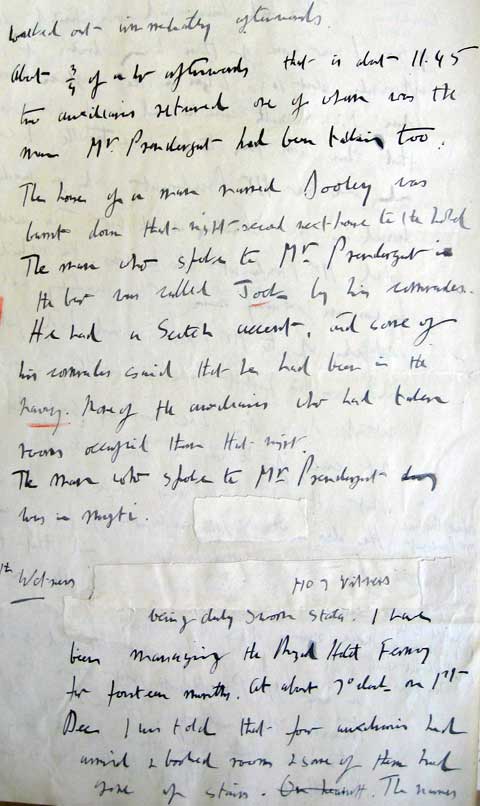 walked out immediately afterwards.
About 3/4 of an hr afterwards that is about 11.45
two auxiliaries returned one of whom was the
man Mr Prendergast had been talking too.
The house of a man named Dooley was
burnt down that night-second next house to the hotel
The man who spoke to Mr Prendergast in
the bar was called Jock by his comrades.
He had a Scotch accent, and some of
his comrades said that he had been in the
navy. None of the auxiliaries who had taken
rooms occupied them that night.
The man who spoke to Mr Prendergast
was in mufti.
7th Witness
No 7 Witness
being duly sworn states. I have
been managing the Royal Hotel Fermoy
for fourteen months. At about 7 o'clock on 1st
Dec I was told that four auxiliaries had
arrived & booked rooms & some of them had
gone up stairs. The names